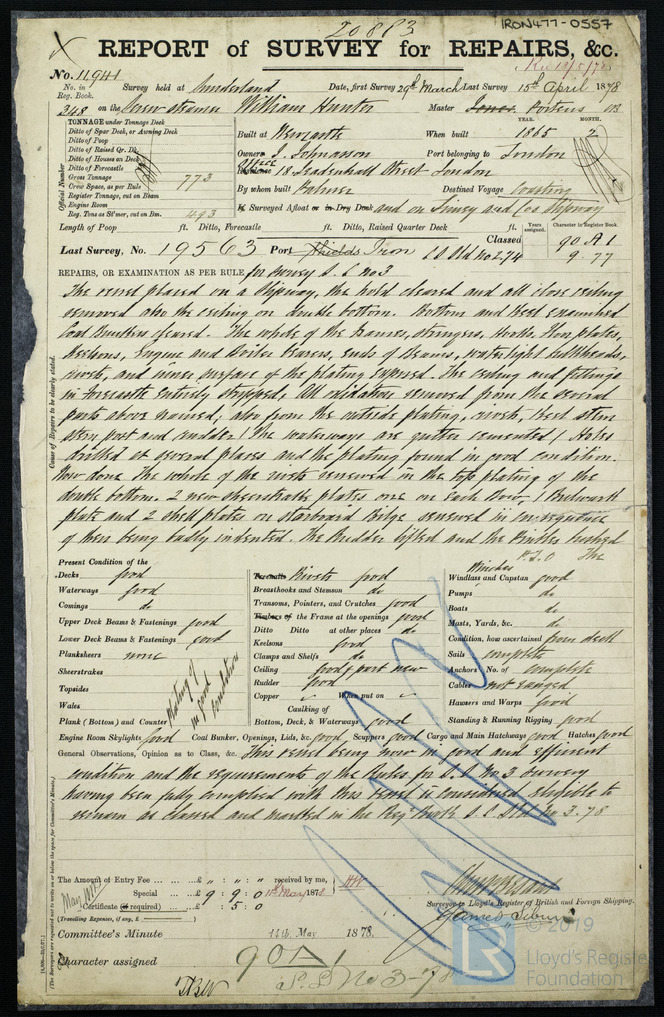 20863
IRON477-0557
REPORT of SURVEY for REPAIRS, &c.
No. 11941
No. in Reg. Book.
Survey held at Sunderland Date, first Survey 29th March Last Survey 15th April 1878
348 on the Screw Steamer William Hunter Master Porteus
TONNAGE under Tonnage Deck
Ditto of Spar Deck, or Awning Deck
Ditto of Poop
Ditto of Raised Qr. Dk.
Ditto of Houses on Deck
Ditto of Forecastle
Gross Tonnage 773
Crew Space, as per Rule
Register Tonnage, cut on Beam
Engine Room
Reg. Tons as St'mer, cut on Bm. 493
Official Number
Built at Newcastle When built 1865 2
YEAR. MONTH.
Owners J. Johnasson Port belonging to London
Office 18 Leadenhall Street London
By whom built Palmer Destined Voyage Coasting
If Surveyed Afloat or in Dry Dock and on Slipway
Length of Poop ft. Ditto, Forecastle ft. Ditto, Raised Quarter Deck ft.
Years assigned. Character in Register Book
Last Survey, No. 19563 Port Shields Iron Classed 90 A 1
9.77
REPAIRS, OR EXAMINATION AS PER RULE, for Survey S.S. No 3
The vessel placed on a Slipway, the hold cleared and all close ceiling
removed also the ceiling on double bottom. Bottom and Keel examined
Coal Bunkers cleared. The whole of the frames, stringers, hooks, floor plates,
keelsons, engine and boiler bearers, ends of beams, watertight bulkheads,
rivets, and inner surface of the plating exposed. The ceiling and fittings
in forecastle entirely stripped, All oxidation removed from the several
parts above named; also from the outside plating, rivets, keel stem
stern post and rudder. (The waterways are gutter cemented) Holes
drilled at several places and the plating found in good condition.
Now done The whole of the rivets renewed in the top plating of the
double bottom. 2 new sheerstrake plates one on each bow, 1 Bulwark
plate and 2 shell plates on starboard Bilge renewed in consequence
of them being badly indented. The Rudder lifted and the Pintles bushed
P.T.O The
Cause of Repairs to be clearly stated.
Present Condition of the
Decks good
Waterways good
Comings do
Upper Deck Beams & Fastenings good
Lower Deck Beams & Fastenings good
Planksheers none
Sheerstrakes
Topsides
Wales
Plank (Bottom) and Counter
Plating in good condition
Engine Room Skylights good
Treenails Rivets good
Breasthooks and Stemson do
Transoms, Pointers, and Crutches good
Timbers of the Frame at the openings good
Ditto Ditto at other places do
Keelsons good
Clamps and Shelfs do
Ceiling good, part new
Rudder good
Copper When put on
Caulking of
Bottom, Deck, & Waterways good
Coal Bunker, Openings, Lids, &c. good Scuppers good Cargo and Main Hatchways good Hatches good
Winches
Windlass and Capstan good
Pumps do
Boats do
Masts, Yards, &c. do
Condition, how ascertained from deck
Sails complete
Anchors No. of complete
Cables not ranged
Hawsers and Warps good
Standing & Running Rigging good
General Observations, Opinion as to Class, &c. This vessel being now in good and efficient
condition and the requirements of the Rules for S.S. No 3 Survey
having been fully complied with this vessel is considered eligible to
remain as classed and marked in the Reg Book
The Amount of Entry Fee £ received by me,
Special £ 9 : 9 : 0 May 1878
Certificate (if required) : 5 : 0
(Travelling Expenses, if any, £ )
Surveyor to Lloyd's Register of British and Foreign Shipping.
Committee's Minute 14th May 1878.
Character assigned 90 A 1
S.S. No 3-78
© 2019
LR
Lloyd's Register
Foundation